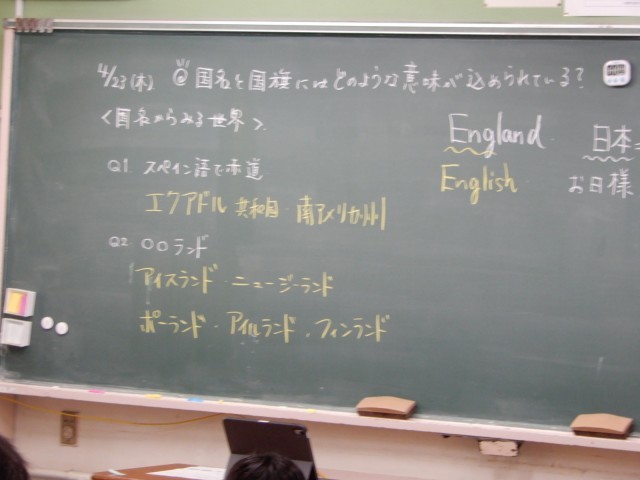 4/23(木) @国名と国旗にはどのような意味が込められている?
<国名からみる世界>
Q1. スペイン語で赤道
エクアドル 共和国・南アメリカ州
Q2 ○○ランド
アイスランド・ニュージーランド
ポーランド・アイルランド・フィンランド
England
English
日本
お日様